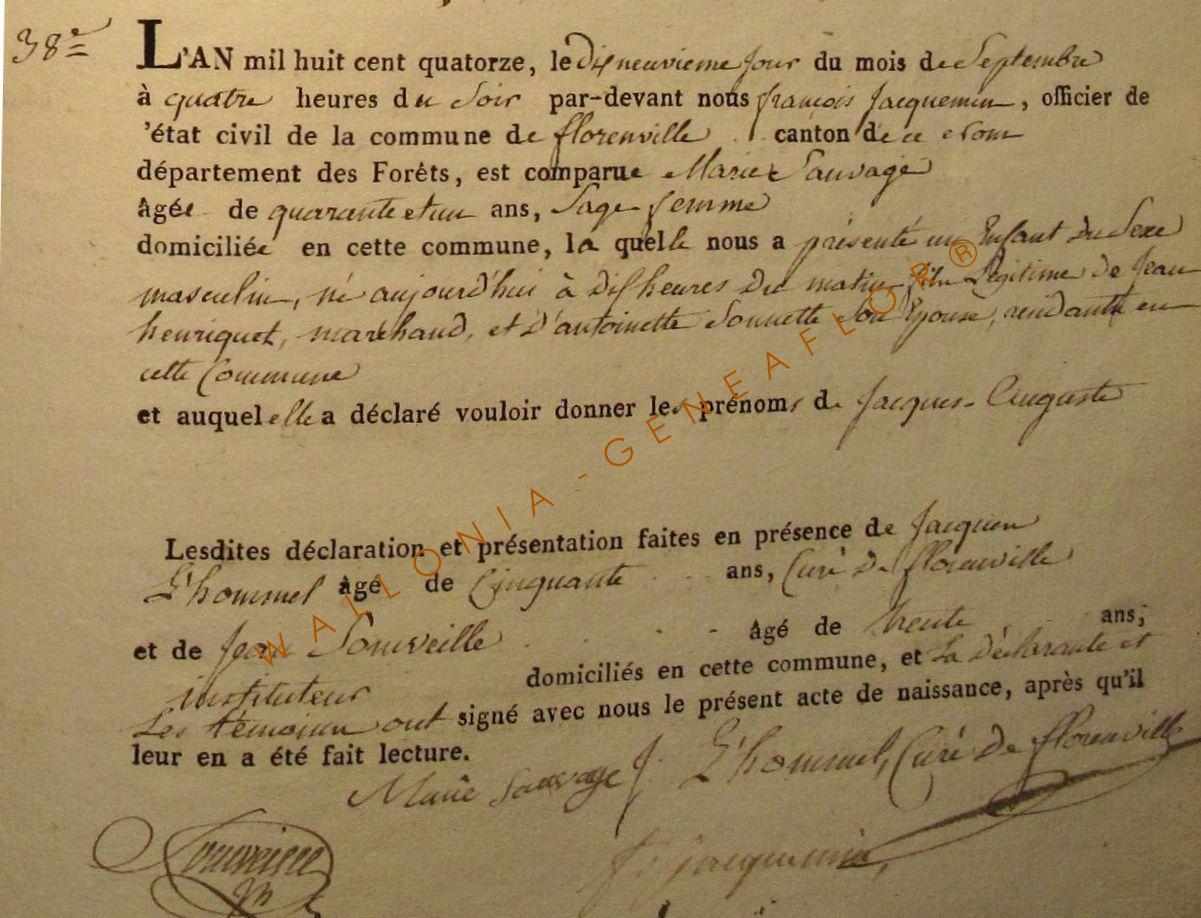 38e
L'AN mil huit cent quatorze, le dixneuvieme jour du mois de Septembre
à quatre heures du Soir par-devant nous françois Jacquemin, officier de
'état civil de la commune de florenville canton de ce Nom
département des Forêts, est comparue Marie Sauvage
âgée de quarante et un ans, Sage femme
domiciliée en cette commune, la quelle nous a présenté un Enfant du Sexe
masculin, né aujourd'hui à dix heures du matin, fils Légitime de Jean
henriquet, marchand, et d'antoinette Sonnette Son Epouse, résidants en
cette Commune
et auquel elle a déclaré vouloir donner les prénoms de Jacques-Auguste
Lesdites déclaration et présentation faites en présence de Jacques
L'hommel âgé de Cinquante ans, Curé de florenville
et de Jean Souveille âgé de trente ans,
instituteur domiciliés en cette commune, et La déclarante et
Les témoins ont signé avec nous le présent acte de naissance, après qu'il
leur en a été fait lecture.
Marie Sauvage J. L'hommel, Curé de florenville
f. jacquemin,
WALLONIA - GENEAFLOR ®